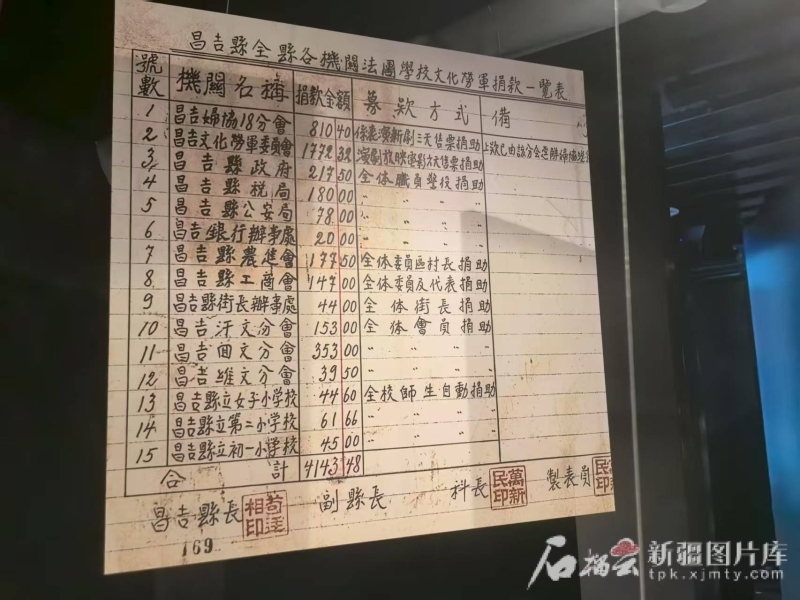 昌吉縣全縣各機關法團學校文化勞軍捐款一覽表
號數 機關名稱 捐款金額 募款方式 備
1 昌吉婦協18分會 810 40 係表演新劇三天售票捐助
2 昌吉文化勞軍委員會 1772 32 演劇放映電影六天售票捐助
3 昌吉縣政府 217 50 全体職員警役捐助
4 昌吉縣税局 180 00 〃 〃 〃
5 昌吉縣公安局 78 00 〃 〃 〃
6 昌吉銀行辦事處 20 00 〃 〃 〃
7 昌吉縣農進會 177 50 全体委員區村長捐助
8 昌吉縣工商會 147 00 全体委員及代表捐助
9 昌吉縣街長辦事處 44 00 全体街長捐助
10 昌吉汗文分會 153 00 全体會員捐助
11 昌吉回文分會 353 00 〃 〃 〃
12 昌吉維文分會 39 50 〃 〃 〃
13 昌吉縣立女子小學校 44 60 全校師生自動捐助
14 昌吉縣立第二小學校 61 66 〃 〃 〃
15 昌吉縣立初一小學校 45 00 〃 〃 〃
合計 4143 48
昌吉縣長 相印 副縣長 科長 萬新民印 製表員
169
石榴云 新疆图片库
tpk.xjmty.com